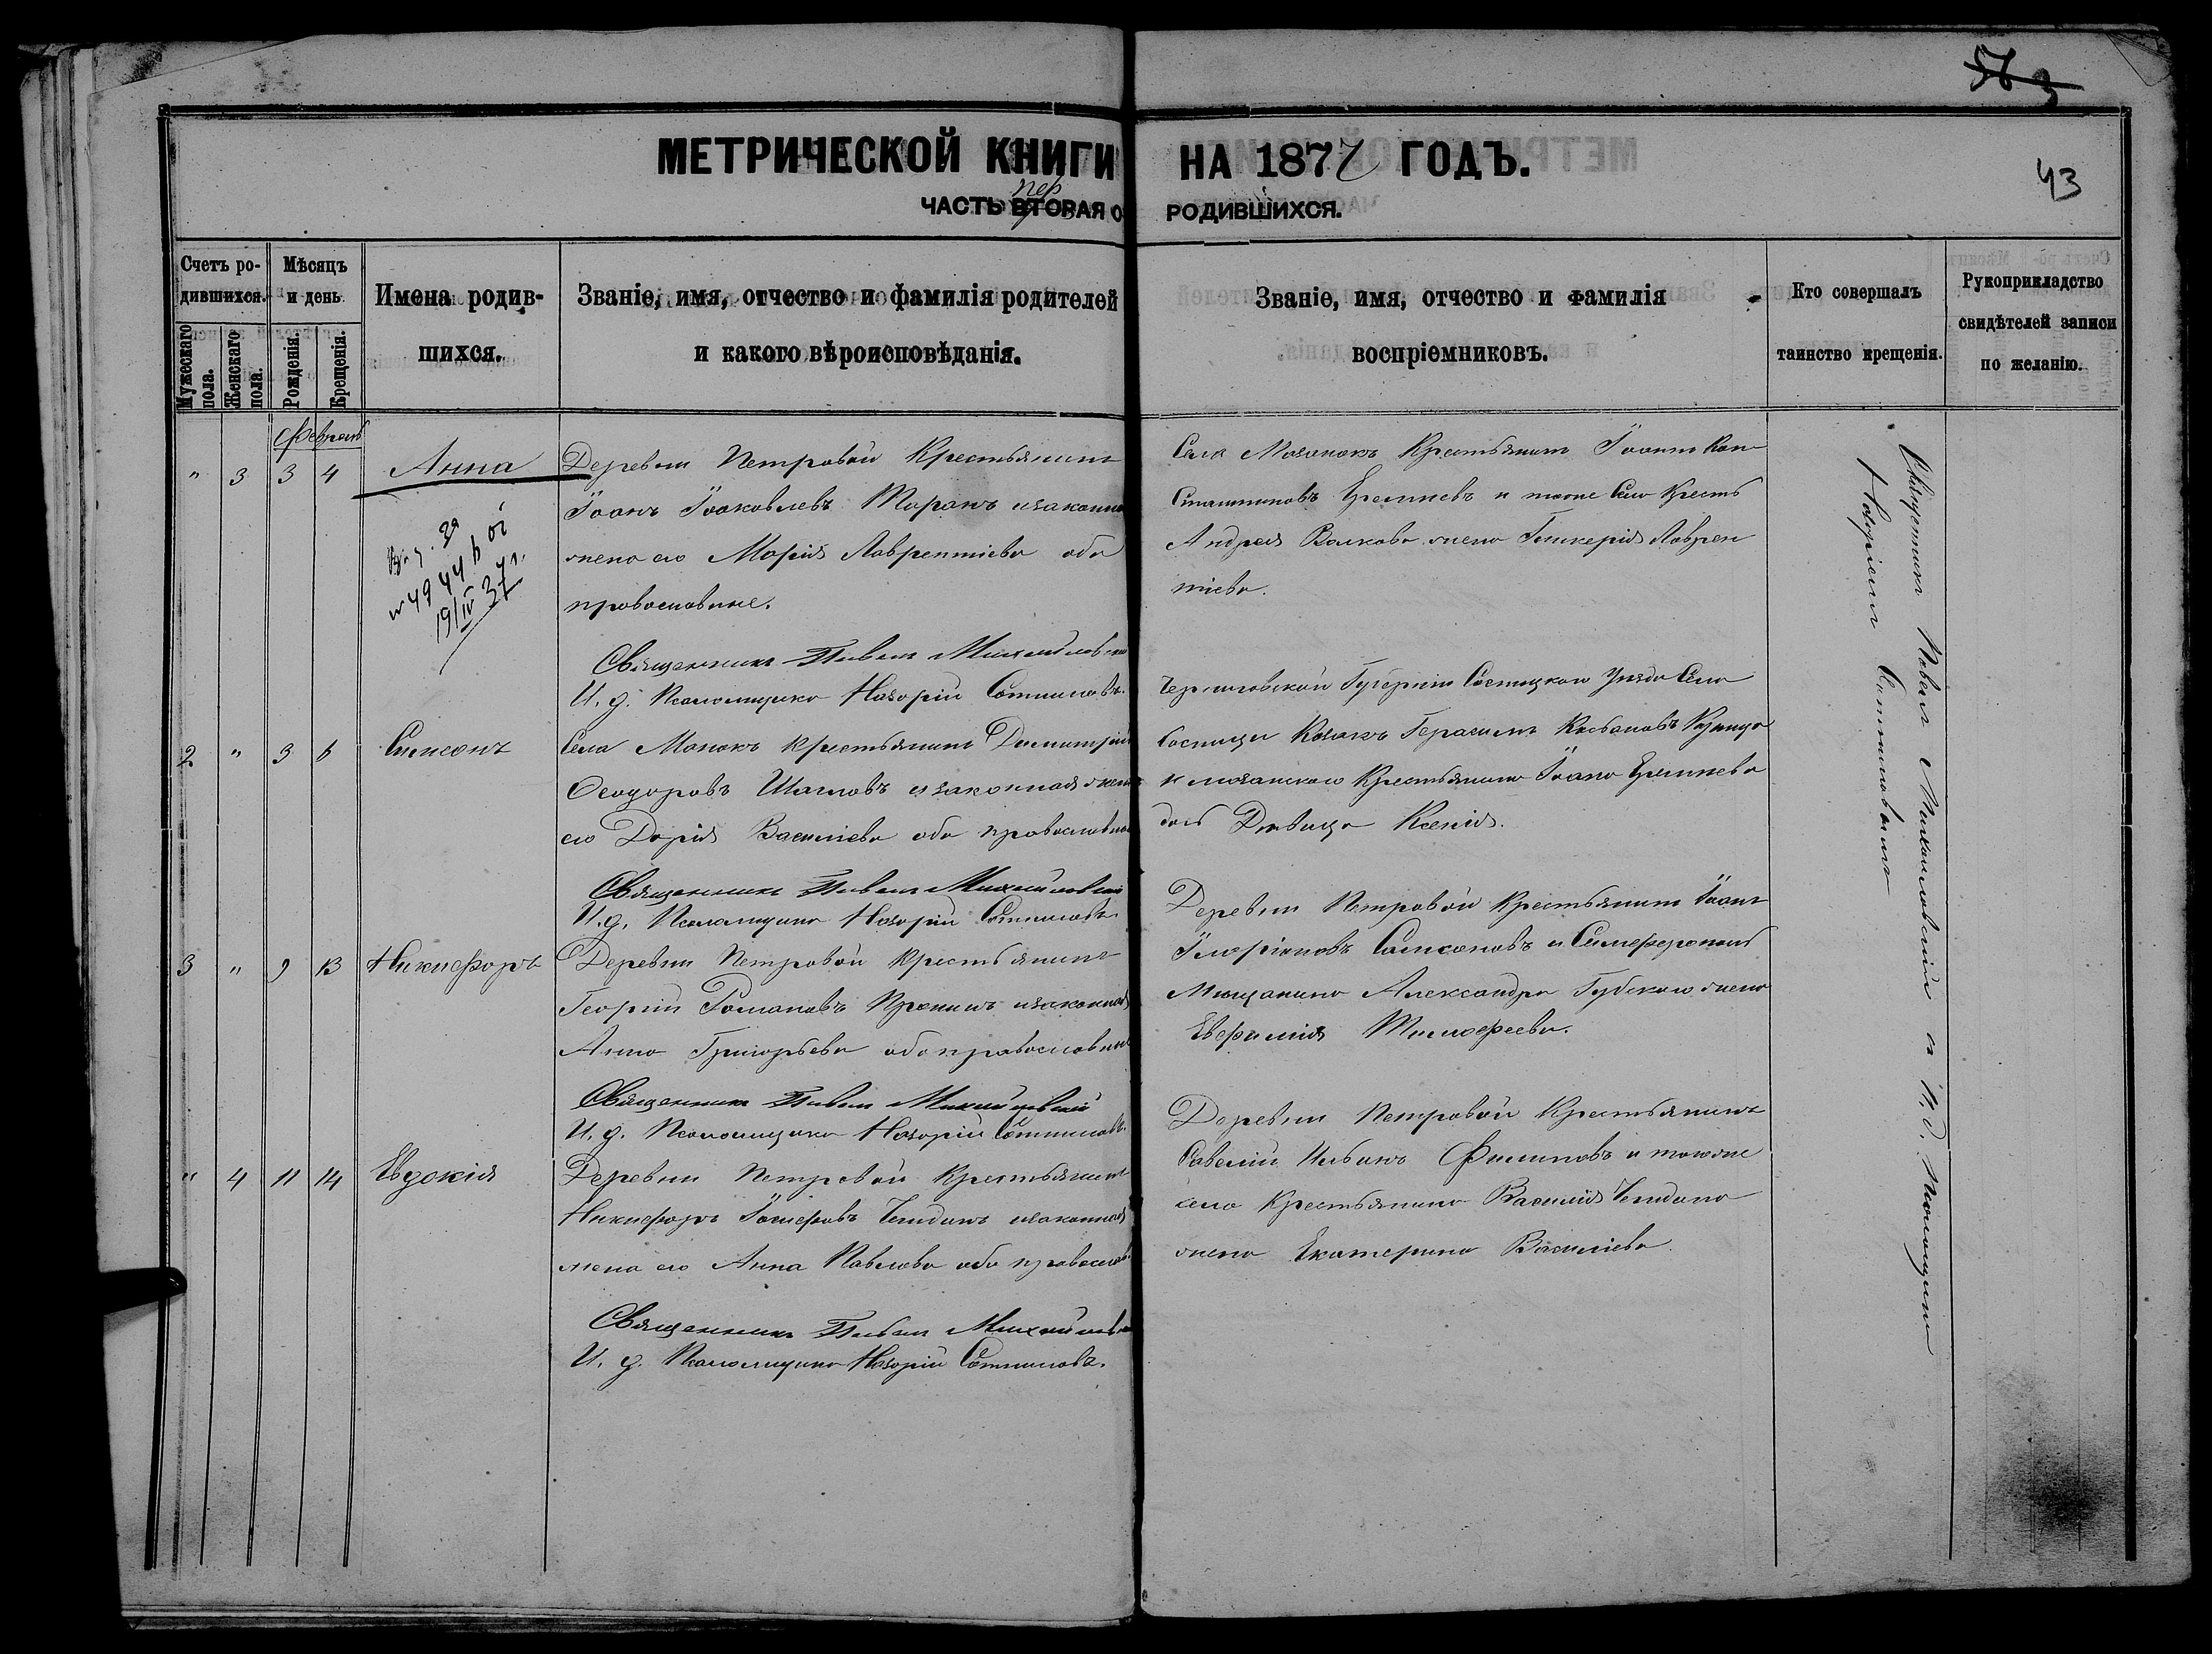 56 3
МЕТРИЧЕСКОЙ КНИГИ НА 1877 ГОДЪ.
43
пер
ЧАСТЬ ВТОРАЯ О РОДИВШИХСЯ.
Счетъ ро-
дившихся.
Мужескаго
пола.
Женскаго
пола.
Мѣсяцъ
и день
Рожденія.
Крещенія.
Имена родив-
шихся.
Званіе, имя, отчество и фамилія родителей
и какого вѣроисповѣданія.
Званіе, имя, отчество и фамилія
воспріемниковъ.
Кто совершалъ
таинство крещенія.
Рукоприкладство
свидѣтелей записи
по желанію.
Февраль
" 3 3 4 Анна
19/IV 37 г.
Деревни Петровой Крестьянинъ
Іоанъ Іоаковлевъ Таранъ изаконна
жена его Марія Лаврентіева оба
православные.
Священникъ Павелъ Михайловск
И. д. Псаломщика Назорій Сотниковъ.
Села Мазанокъ Крестьянинъ Іоанъ Кон
стантиновъ Еремиевъ и того Села Крестъ
Андрея Волкова жена Гликерія Лаврен
тіева.
2 " 3 6 Симеонъ
Села Мазанокъ Крестьянинъ Димитрій
Феодоровъ Шагловъ изаконная жен
его Дарія Василіева оба православн
Священникъ Павелъ Михайловскій
И. д. Псаломщика Назорій Сотниковъ
Черниговской Губерніи Сосницкаго Уезда Села
Сосницы Козакъ Герасимъ Касьановъ
и мазанскаго Крестьянина Іоана Еремиева
дочь Дѣвица Ксенія.
3 " 9 13 Никифоръ
Деревни Петровой Крестьянинъ
Георгій Романовъ Пронинъ изаконная
Анна Григорьева оба православны
Священникъ Павелъ Михайловскій
И. д. Псаломщика Назорій Сотниковъ.
Деревни Петровой Крестьянинъ Іоанъ
Самсоновъ и Симферополь
Мищанина Александра Губскаго жена
Евфимія Тимофеева.
" 4 11 14 Евдокія
Деревни Петровой Крестьянинъ
Никифоръ Іосифовъ изаконная
жена его Анна Павлова оба православ
Священникъ Павелъ Михайловск
И. д. Псаломщика Назорій Сотниковъ.
Деревни Петровой Крестьянинъ
Савелій Ильинъ Филиповъ и тогоже
села Крестьянина Василія
жена Екатерина Василіева.
Священникъ Павелъ Михайловскій и И. д. Псаломщика
Назорій Сотниковъ